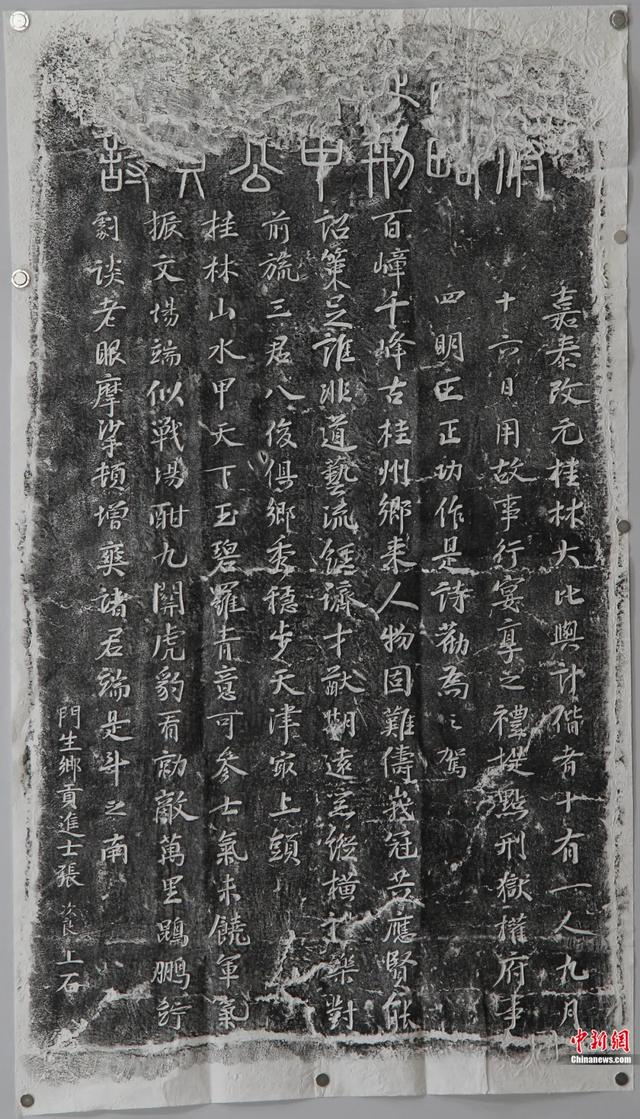 嘉泰改元桂林大比與計偕者十有一人九月
十六日用故事行宴享之禮提點刑獄權府事
四明王正功作是詩勸為之駕
百嶂千峰古桂州鄉來人物固難儔峩冠共應賢能
詔策足誰非道藝流經濟才猷期遠業縱橫禮樂對
前旒三君八俊俱鄉秀穩步天津最上頭
桂林山水甲天下玉碧羅青意可參士氣未饒軍氣
振文場端似戰場酣九關虎豹看勍敵萬里鵾鵬佇
劇談老眼摩挲頓增爽諸君端是斗之南
門生鄉貢進士張次良上石
中新網
Chinanews.com